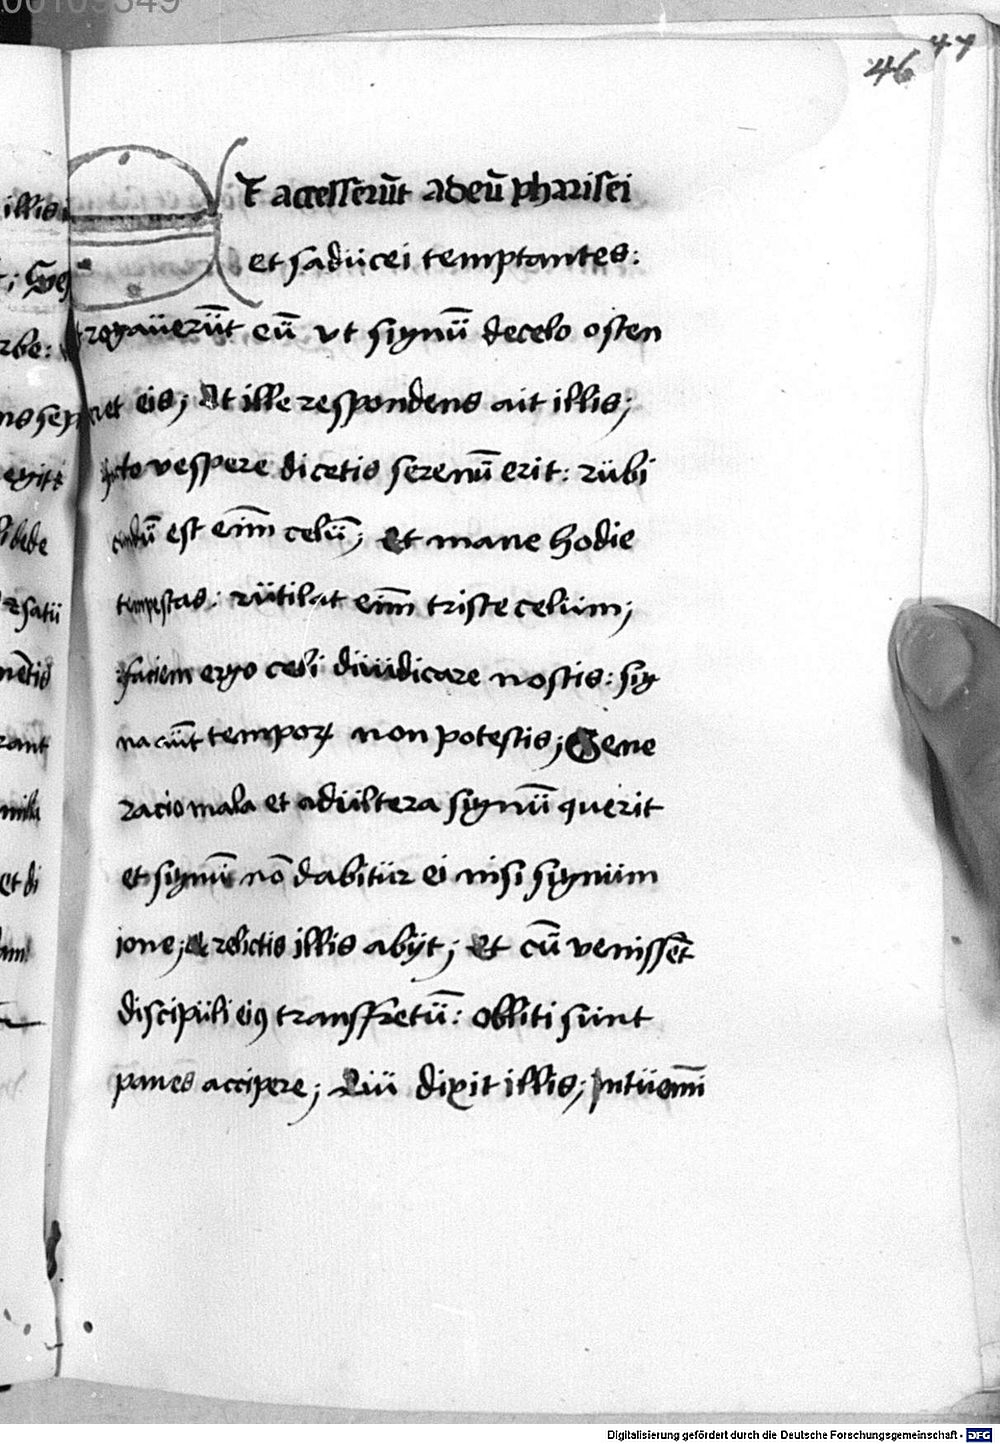 00109349
46 47
ET accesserūt adeū pharisei
et saducei temptantes:
et rogauerūt eū vt signū decelo osten
deret eis; At ille respondens ait illis;
facto vespere dicetis serenū erit: rubi
cundū est eīm celū; Et mane hodie
tempestas: rutilat eīm triste celum;
faciem ergo celi diiudicare nostis: sig
na aūt temporꝝ non potestis; Gene
racio mala et adultera signū querit
et signū nō dabitur ei nisi signum
ione; et relictis illis abijt; Et cū venissēt
discipuli eiꝰ transfretū: obliti sunt
panes accipere; Qui dixit illis; Intuemī
illis
rbe:
egiti
dede
rsatū
rant
et di
Digitalisierung gefördert durch die Deutsche Forschungsgemeinschaft - DFG